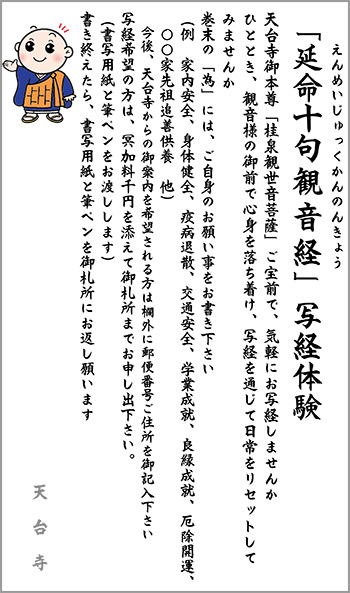 えんめいじゅっくかんのんきょう
「延命十句観音経」写経体験
天台寺御本尊「桂泉観世音菩薩」ご宝前で、気軽にお写経しませんか
ひととき、観音様の御前で心身を落ち着け、写経を通じて日常をリセットして
みませんか
巻末の「為」には、ご自身のお願い事をお書き下さい
(例 家内安全、身体健全、疫病退散、交通安全、学業成就、良縁成就、厄除開運、
〇〇家先祖追善供養 他)
今後、天台寺からの御案内を希望される方は欄外に郵便番号ご住所を御記入下さい
写経希望の方は、冥加料千円を添えて御札所までお申し出下さい。
(書写用紙と筆ペンをお渡しします)
書き終えたら、書写用紙と筆ペンを御札所にお返し願います
天台寺